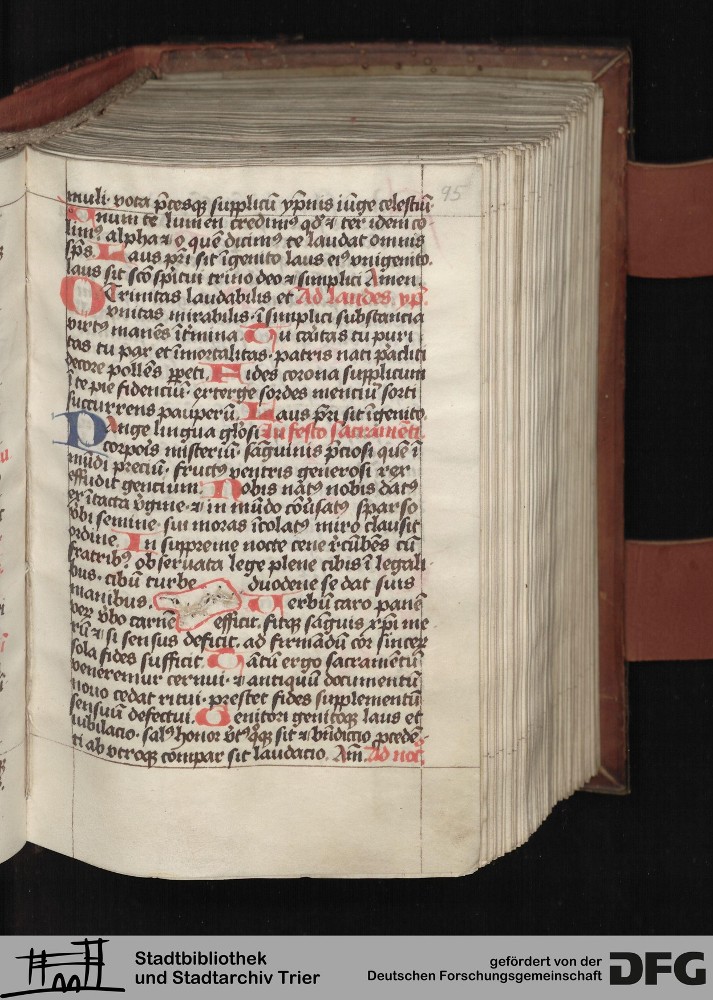 95
muli. vota p̄cesq̄ supplicū ypnis iūge celestiū.
Unum te lumen credimꝰ qd̓ ⁊ ter idem co
limꝰ alpha ⁊ o quē dicimꝰ te laudat omnis
sp̄s. Laus pr̄i sit īgenito laus eiꝰ vnigenito.
laus sit scō spiritui trino deo ⁊ simplici Amen.
O Trinitas laudabilis et Ad laudes. yp̄.
vnitas mirabilis. ī simplici substancia
virtꝰ manēs īt̓mina. Tu caritas tu puri
tas tu pax et īmortalitas. patris nati paͣcliti
decore pollēs ꝑpeti. Fides corona supplicum
ī te pie fidenciū. exterge sordes menciū sorti
succurrens pauperū. Laus pr̄i sit īgenito.
Pange lingua glosi In festo sacramēti.
corpoīs misteriū. sāguinis p̄ciosi quē ī
mūdi preciū. fructꝰ ventris generosi rex
effudit gentium. Nobis natꝰ nobis datꝰ
ex ītacta v̓gine. ⁊ in mūdo cōu̓satꝰ sparso
v̓bi semine. sui moras īcolatꝰ miro clausit
ordine. In supreme nocte cene r̓cūbēs cū
fratribꝰ. observata lege plene cibis ī legali
bus. cibū turbe duodene se dat suis
manibus. Verbū caro panē
ver̄ v̓bo carnē efficit. fitq̄ sāguis xp̄i me
rū ⁊ si sensus deficit. ad firmādū cor sincer̄
sola fides sufficit. Tātū ergo sacramētū
veneremur cernui. ⁊ antiquū documentū
nouo cedat ritui. prestet fides supplementū
sensuū defectui. Genitori genitoq̄ laus et
iubilacio. salꝰ honor v̓tꝰ q̊q̄ sit ⁊ bn̄dictio p̄cedē-
ti ab vtroq̄ cōmpar sit laudacio. Am̄. Ad noc̄.
Stadtbibliothek
und Stadtarchiv Trier
gefördert von der
Deutschen Forschungsgemeinschaft
DFG